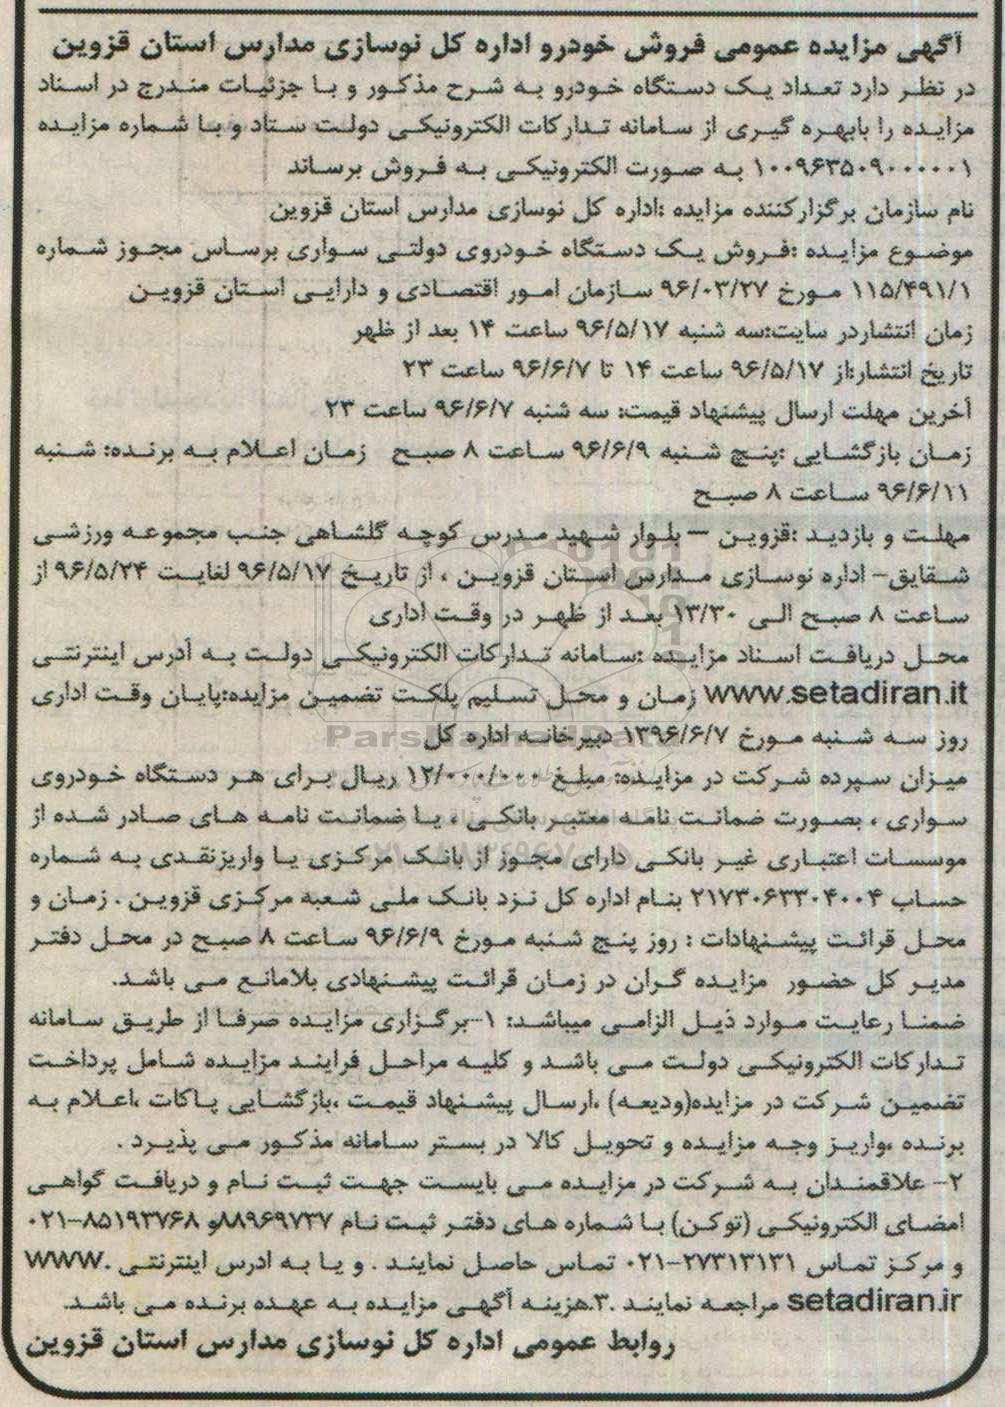 آگهی مزایده عمومی فروش خودرو اداره کل نوسازی مدارس استان قزوین
در نظر دارد تعداد یک دستگاه خودرو به شرح مذکور و با جزئیات مندرج در اسناد
مزایده را بابهره گیری از سامانه تدارکات الکترونیکی دولت ستاد و با شماره مزایده
۱۰۰۹۶۳۵۰۹۰۰۰۰۰۱ به صورت الکترونیکی به فروش برساند
نام سازمان برگزارکننده مزایده :اداره کل نوسازی مدارس استان قزوین
موضوع مزایده :فروش یک دستگاه خودروی دولتی سواری برساس مجوز شماره
۱۱۵/۴۹۱/۱ مورخ ۹۶/۰۳/۲۷ سازمان امور اقتصادی و دارایی استان قزوین
زمان انتشاردر سایت:سه شنبه ۹۶/۵/۱۷ ساعت ۱۴ بعد از ظهر
تاریخ انتشار:از ۹۶/۵/۱۷ ساعت ۱۴ تا ۹۶/۶/۷ ساعت ۲۳
آخرین مهلت ارسال پیشنهاد قیمت: سه شنبه ۹۶/۶/۷ ساعت ۲۳
زمان بازگشایی :پنج شنبه ۹۶/۶/۹ ساعت ۸ صبح زمان اعلام به برنده: شنبه
۹۶/۶/۱۱ ساعت ۸ صبح
مهلت و بازدید :قزوین – بلوار شهید مدرس کوچه گلشاهی جنب مجموعه ورزشی
شقایق- اداره نوسازی مدارس استان قزوین ، از تاریخ ۹۶/۵/۱۷ لغایت ۹۶/۵/۲۴ از
ساعت ۸ صبح الی ۱۳/۳۰ بعد از ظهر در وقت اداری
محل دریافت اسناد مزایده :سامانه تدارکات الکترونیکی دولت به آدرس اینترنتی
www.setadiran.it زمان و محل تسلیم پلکت تضمین مزایده:پایان وقت اداری
روز سه شنبه مورخ ۱۳۹۶/۶/۷ دبیرخانه اداره کل
میزان سپرده شرکت در مزایده: مبلغ ۱۲/۰۰۰/۰۰۰ ریال برای هر دستگاه خودروی
سواری ، بصورت ضمانت نامه معتبر بانکی ، یا ضمانت نامه های صادر شده از
موسسات اعتباری غیر بانکی دارای مجوز از بانک مرکزی یا واریزنقدی به شماره
حساب ۲۱۷۳۰۶۳۳۰۴۰۰۴ بنام اداره کل نزد بانک ملی شعبه مرکزی قزوین . زمان و
محل قرائت پیشنهادات : روز پنج شنبه مورخ ۹۶/۶/۹ ساعت ۸ صبح در محل دفتر
مدیر کل حضور مزایده گران در زمان قرائت پیشنهادی بلامانع می باشد.
ضمنا رعایت موارد ذیل الزامی میباشد: ۱-برگزاری مزایده صرفا از طریق سامانه
تدارکات الکترونیکی دولت می باشد و کلیه مراحل فرایند مزایده شامل پرداخت
تضمین شرکت در مزایده(ودیعه) ،ارسال پیشنهاد قیمت ،بازگشایی پاکات ،اعلام به
برنده ،واریز وجه مزایده و تحویل کالا در بستر سامانه مذکور می پذیرد .
۲- علاقمندان به شرکت در مزایده می بایست جهت ثبت نام و دریافت گواهی
امضای الکترونیکی (توکن) با شماره های دفتر ثبت نام ۸۸۹۶۹۷۳۷و ۸۵۱۹۳۷۶۸-۰۲۱
و مرکز تماس ۲۷۳۱۳۱۳۱-۰۲۱ تماس حاصل نمایند . و یا به ادرس اینترنتی www.
setadiran.ir مراجعه نمایند .۳.هزینه آگهی مزایده به عهده برنده می باشد.
روابط عمومی اداره کل نوسازی مدارس استان قزوین